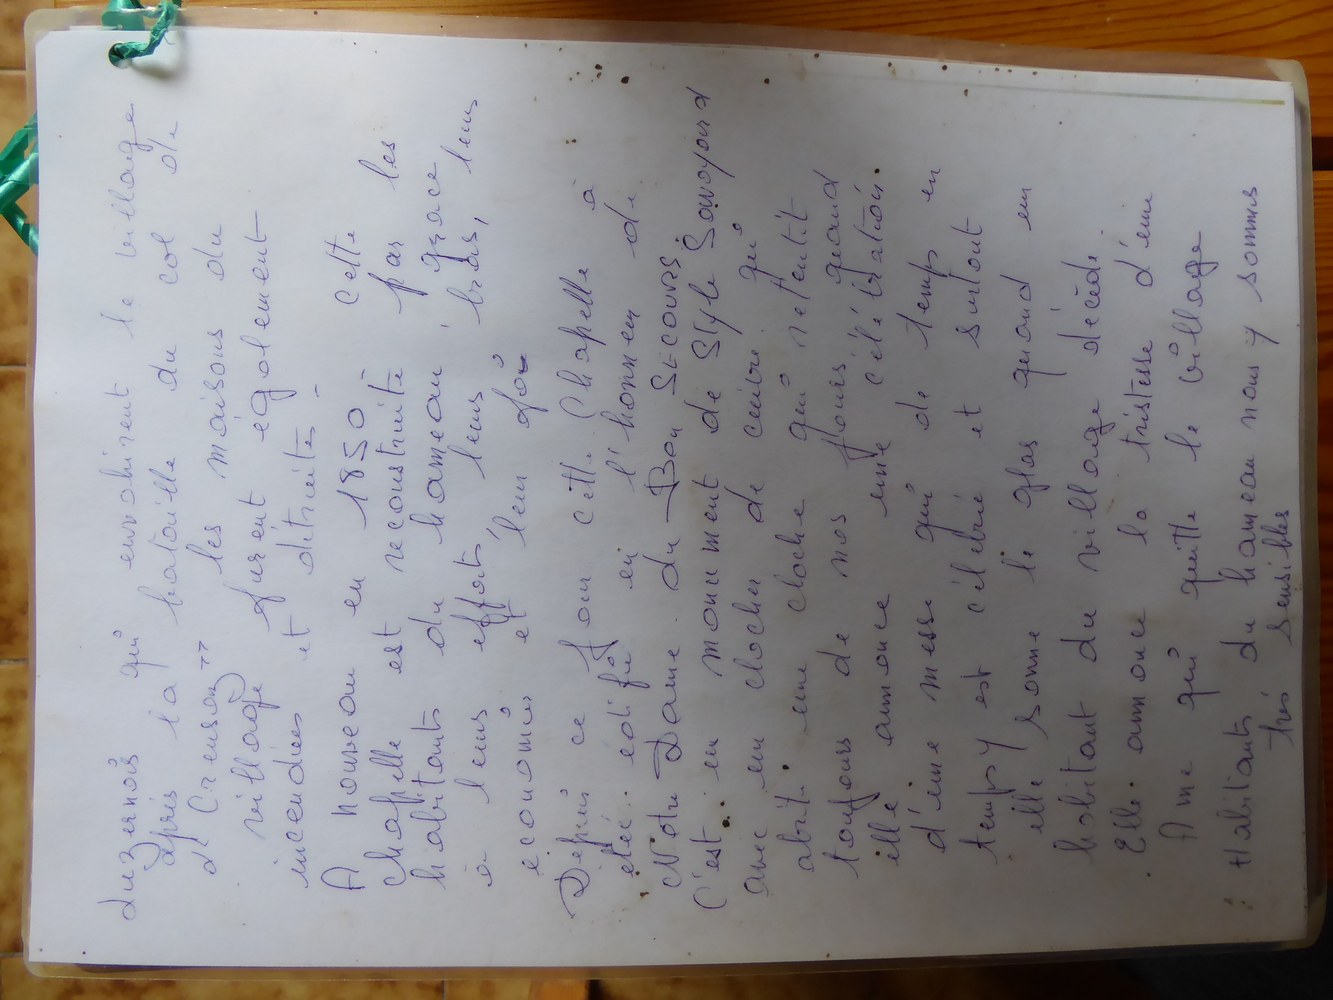 Luzernois qui envahirent le village
après la bataille du col de
de Crensan" les maisons du
village furent également
incendiées et détruites.
A nouveau en 1850 cette
Chapelle est reconstruite par les
habitants du hameau grace
à leurs effort, leurs bras, leurs
économies et leur foi
Depuis ce jour cette Chapelle à
été édifié en l'honneur de
Notre Dame du Bon Secours.
C'est un monument de Style Savoyard
avec un clocher de cuivre qui
abrite une cloche qui retentit
toujours de nos jours quand
elle annonce une célébration.
d'une messe qui de temps en
temps y est célébré et surtout
elle sonne le glas quand un
habitant du village décède.
Elle annonce la tristesse d'une
Ame qui quitte le village
Habitants du hameau nous y sommes
très sensibles